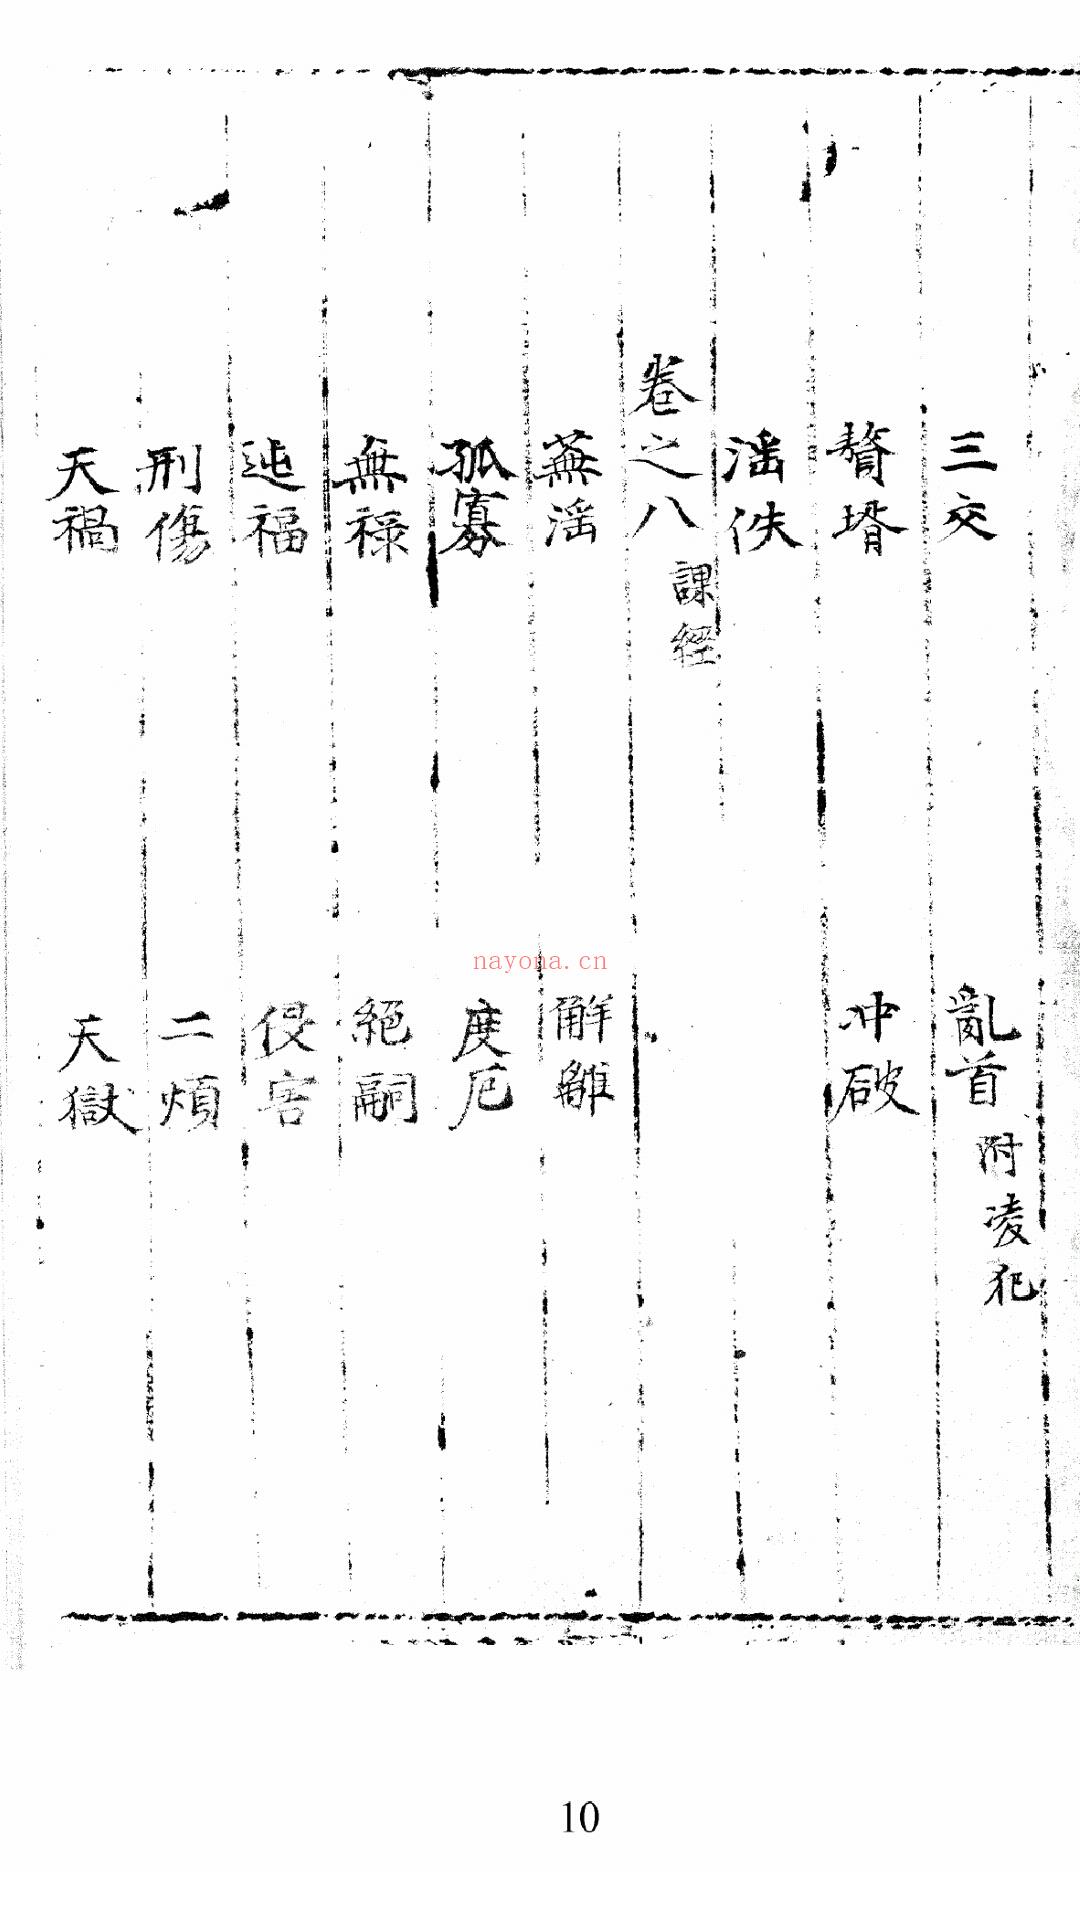 三交　亂首附凌犯
贅壻　冲破
滛佚
卷之八課經
蕪滛　觧離
孤寡　度厄
無禄　絕嗣
迍福　侵害
刑傷　二煩
天禍　天獄
nayona.cn
10